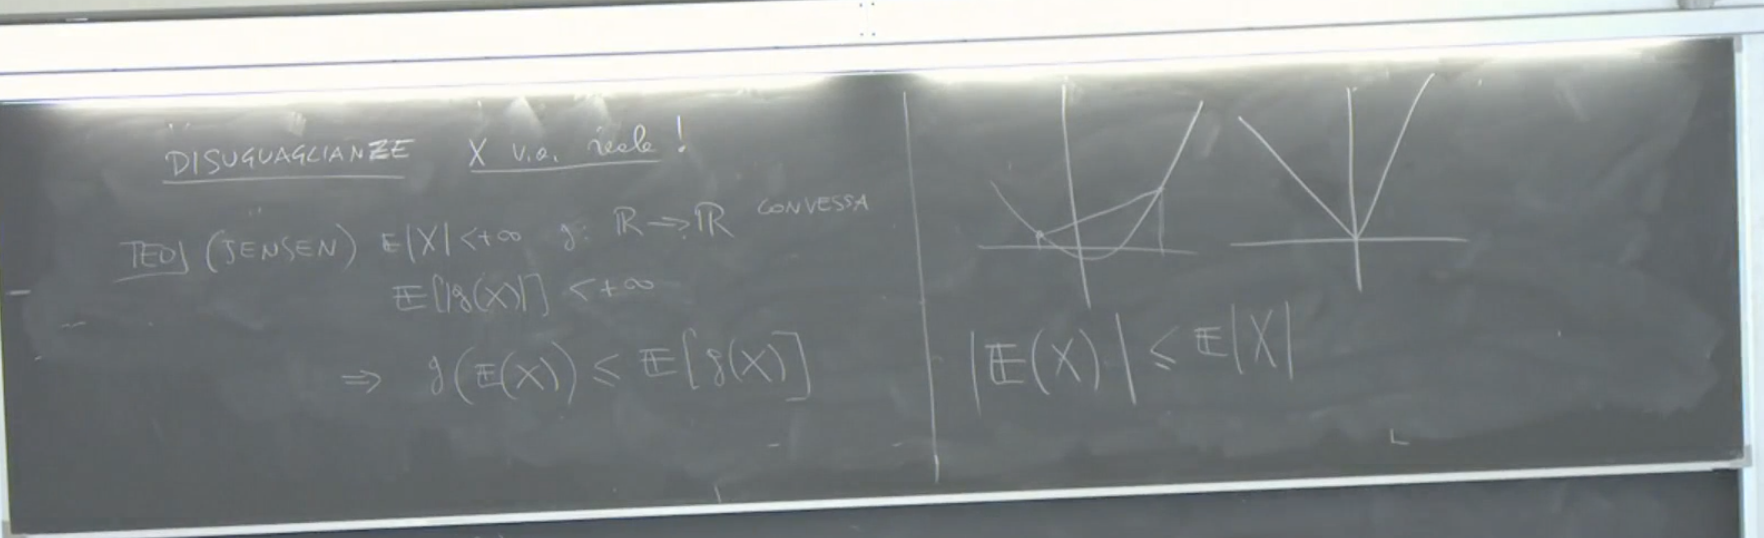 DISUGUAGLIANZE X v.a. reale!
TEO] (JENSEN) 𝔼|X| <+∞ g: ℝ → ℝ CONVESSA
𝔼[|g(X)|] <+∞
⇒ g(𝔼(X)) ≤ 𝔼[g(X)]
|𝔼(X)| ≤ 𝔼|X|